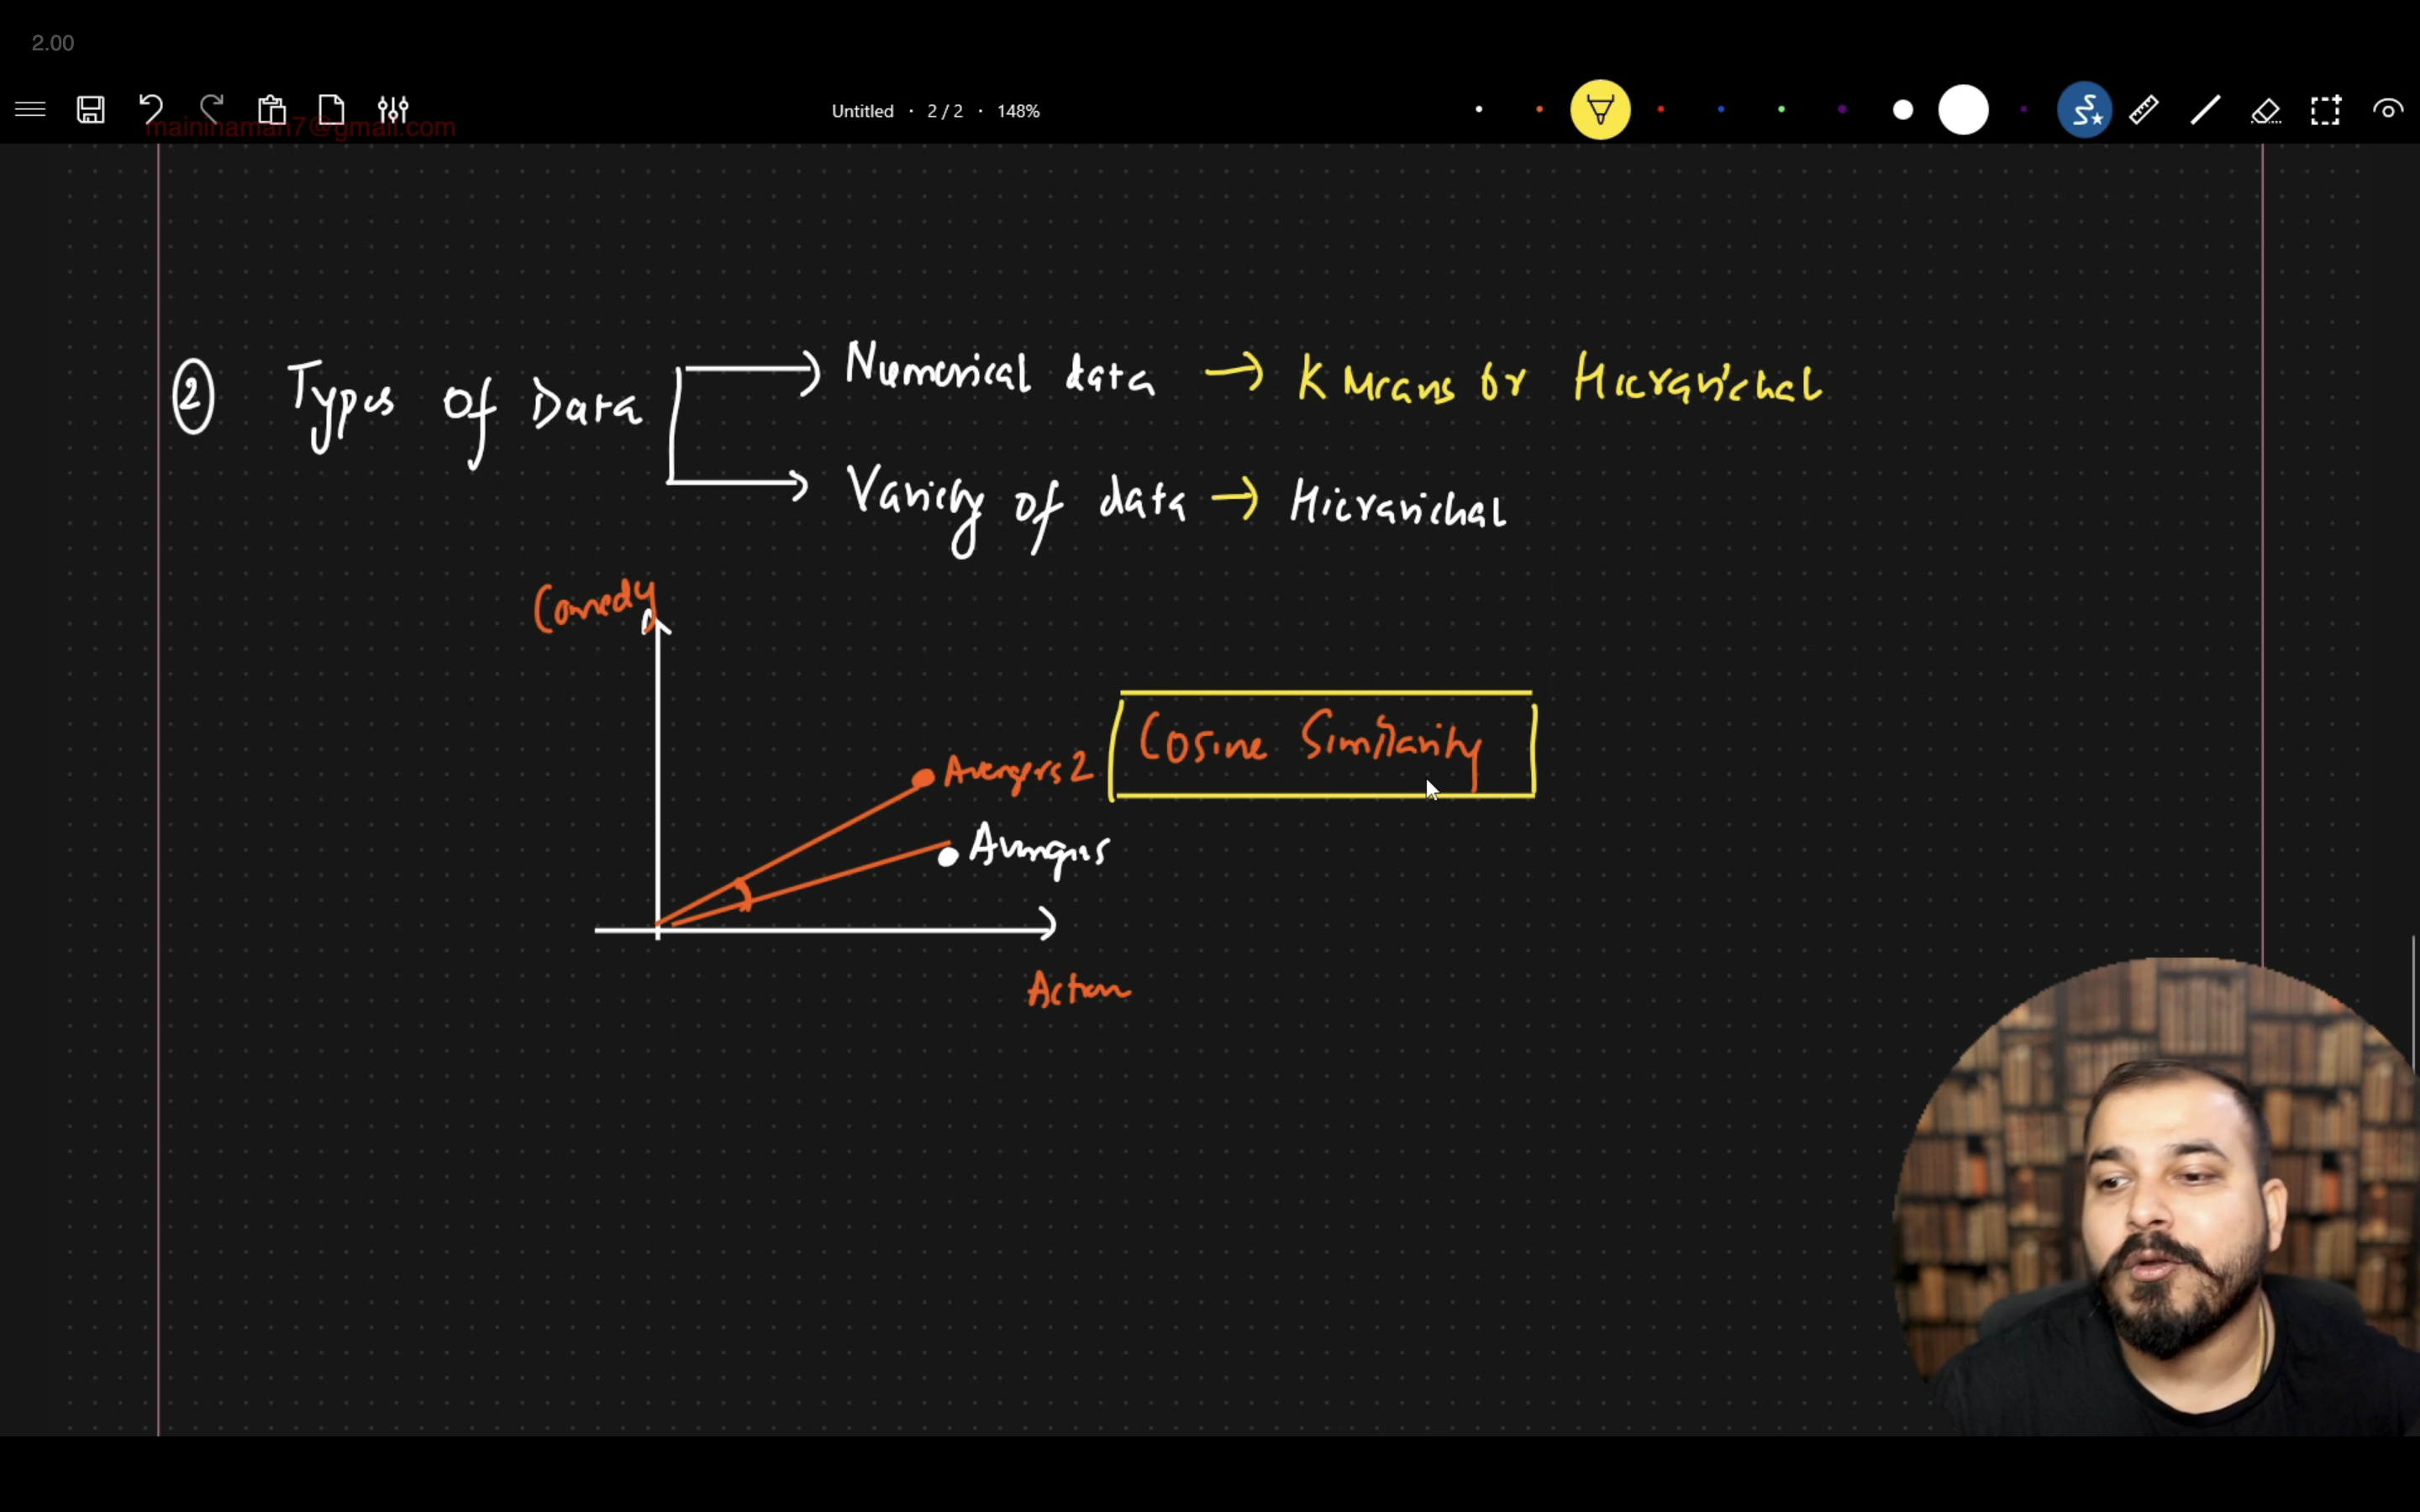 2.00
Untitled · 2 / 2 · 148%
maininaman7@gmail.com
② Types of Data → Numerical data → K Means or Hierarichal
→ Variety of data → Hierarichal
Comedy
Cosine Similarity
Avengers 2
Avengers
Action